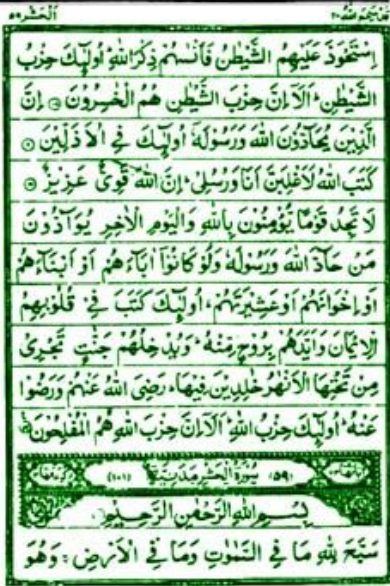 قد سمع الله ٢٨ الحشر ٥٩
اِسْتَحْوَذَ عَلَيْهِمُ الشَّيْطٰنُ فَاَنْسٰىهُمْ ذِكْرَ اللهِ ؕ اُولٰٓئِكَ حِزْبُ
الشَّيْطٰنِ ؕ اَلَاۤ اِنَّ حِزْبَ الشَّيْطٰنِ هُمُ الْخٰسِرُوْنَ ۝ اِنَّ
الَّذِيْنَ يُحَآدُّوْنَ اللهَ وَرَسُوْلَهٗۤ اُولٰٓئِكَ فِي الْاَذَلِّيْنَ ۝
كَتَبَ اللهُ لَاَغْلِبَنَّ اَنَا وَرُسُلِيْ ؕ اِنَّ اللهَ قَوِيٌّ عَزِيْزٌ ۝
لَا تَجِدُ قَوْمًا يُّؤْمِنُوْنَ بِاللهِ وَالْيَوْمِ الْاٰخِرِ يُوَآدُّوْنَ
مَنْ حَآدَّ اللهَ وَرَسُوْلَهٗ وَلَوْ كَانُوْۤا اٰبَآءَهُمْ اَوْ اَبْنَآءَهُمْ
اَوْ اِخْوَانَهُمْ اَوْ عَشِيْرَتَهُمْ ؕ اُولٰٓئِكَ كَتَبَ فِيْ قُلُوْبِهِمُ
الْاِيْمَانَ وَاَيَّدَهُمْ بِرُوْحٍ مِّنْهُ ؕ وَيُدْخِلُهُمْ جَنّٰتٍ تَجْرِيْ
مِنْ تَحْتِهَا الْاَنْهٰرُ خٰلِدِيْنَ فِيْهَا ؕ رَضِيَ اللهُ عَنْهُمْ وَرَضُوْا
عَنْهُ ؕ اُولٰٓئِكَ حِزْبُ اللهِ ؕ اَلَاۤ اِنَّ حِزْبَ اللهِ هُمُ الْمُفْلِحُوْنَ ۝
(٥٩) سُوْرَةُ الْحَشْرِ مَدَنِيَّةٌ (١٠١)
بِسْمِ اللهِ الرَّحْمٰنِ الرَّحِيْمِ
سَبَّحَ لِلّٰهِ مَا فِي السَّمٰوٰتِ وَمَا فِي الْاَرْضِ ۚ وَهُوَ